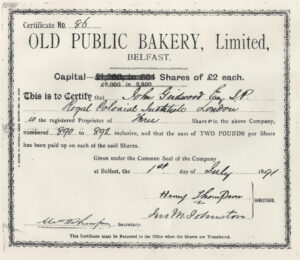 Certificate No. 86
OLD PUBLIC BAKERY, Limited,
BELFAST.
Capital— Shares of £2 each.
£5,000 in 2,500
This is to Certify that John Girdwood Esq. J.P.
Royal Colonial Institute London
is the registered Proprietor of Three Shares in the above Company,
numbered 890 to 892 inclusive, and that the sum of TWO POUNDS per Share
has been paid up on each of the said Shares.
Given under the Common Seal of the Company
at Belfast, the 1st day of July 1891
Henry Thompson
DIRECTORS.
Jno. M. Johnston
SECRETARY.
This Certificate must be Returned to the Office when the Shares are Transferred.